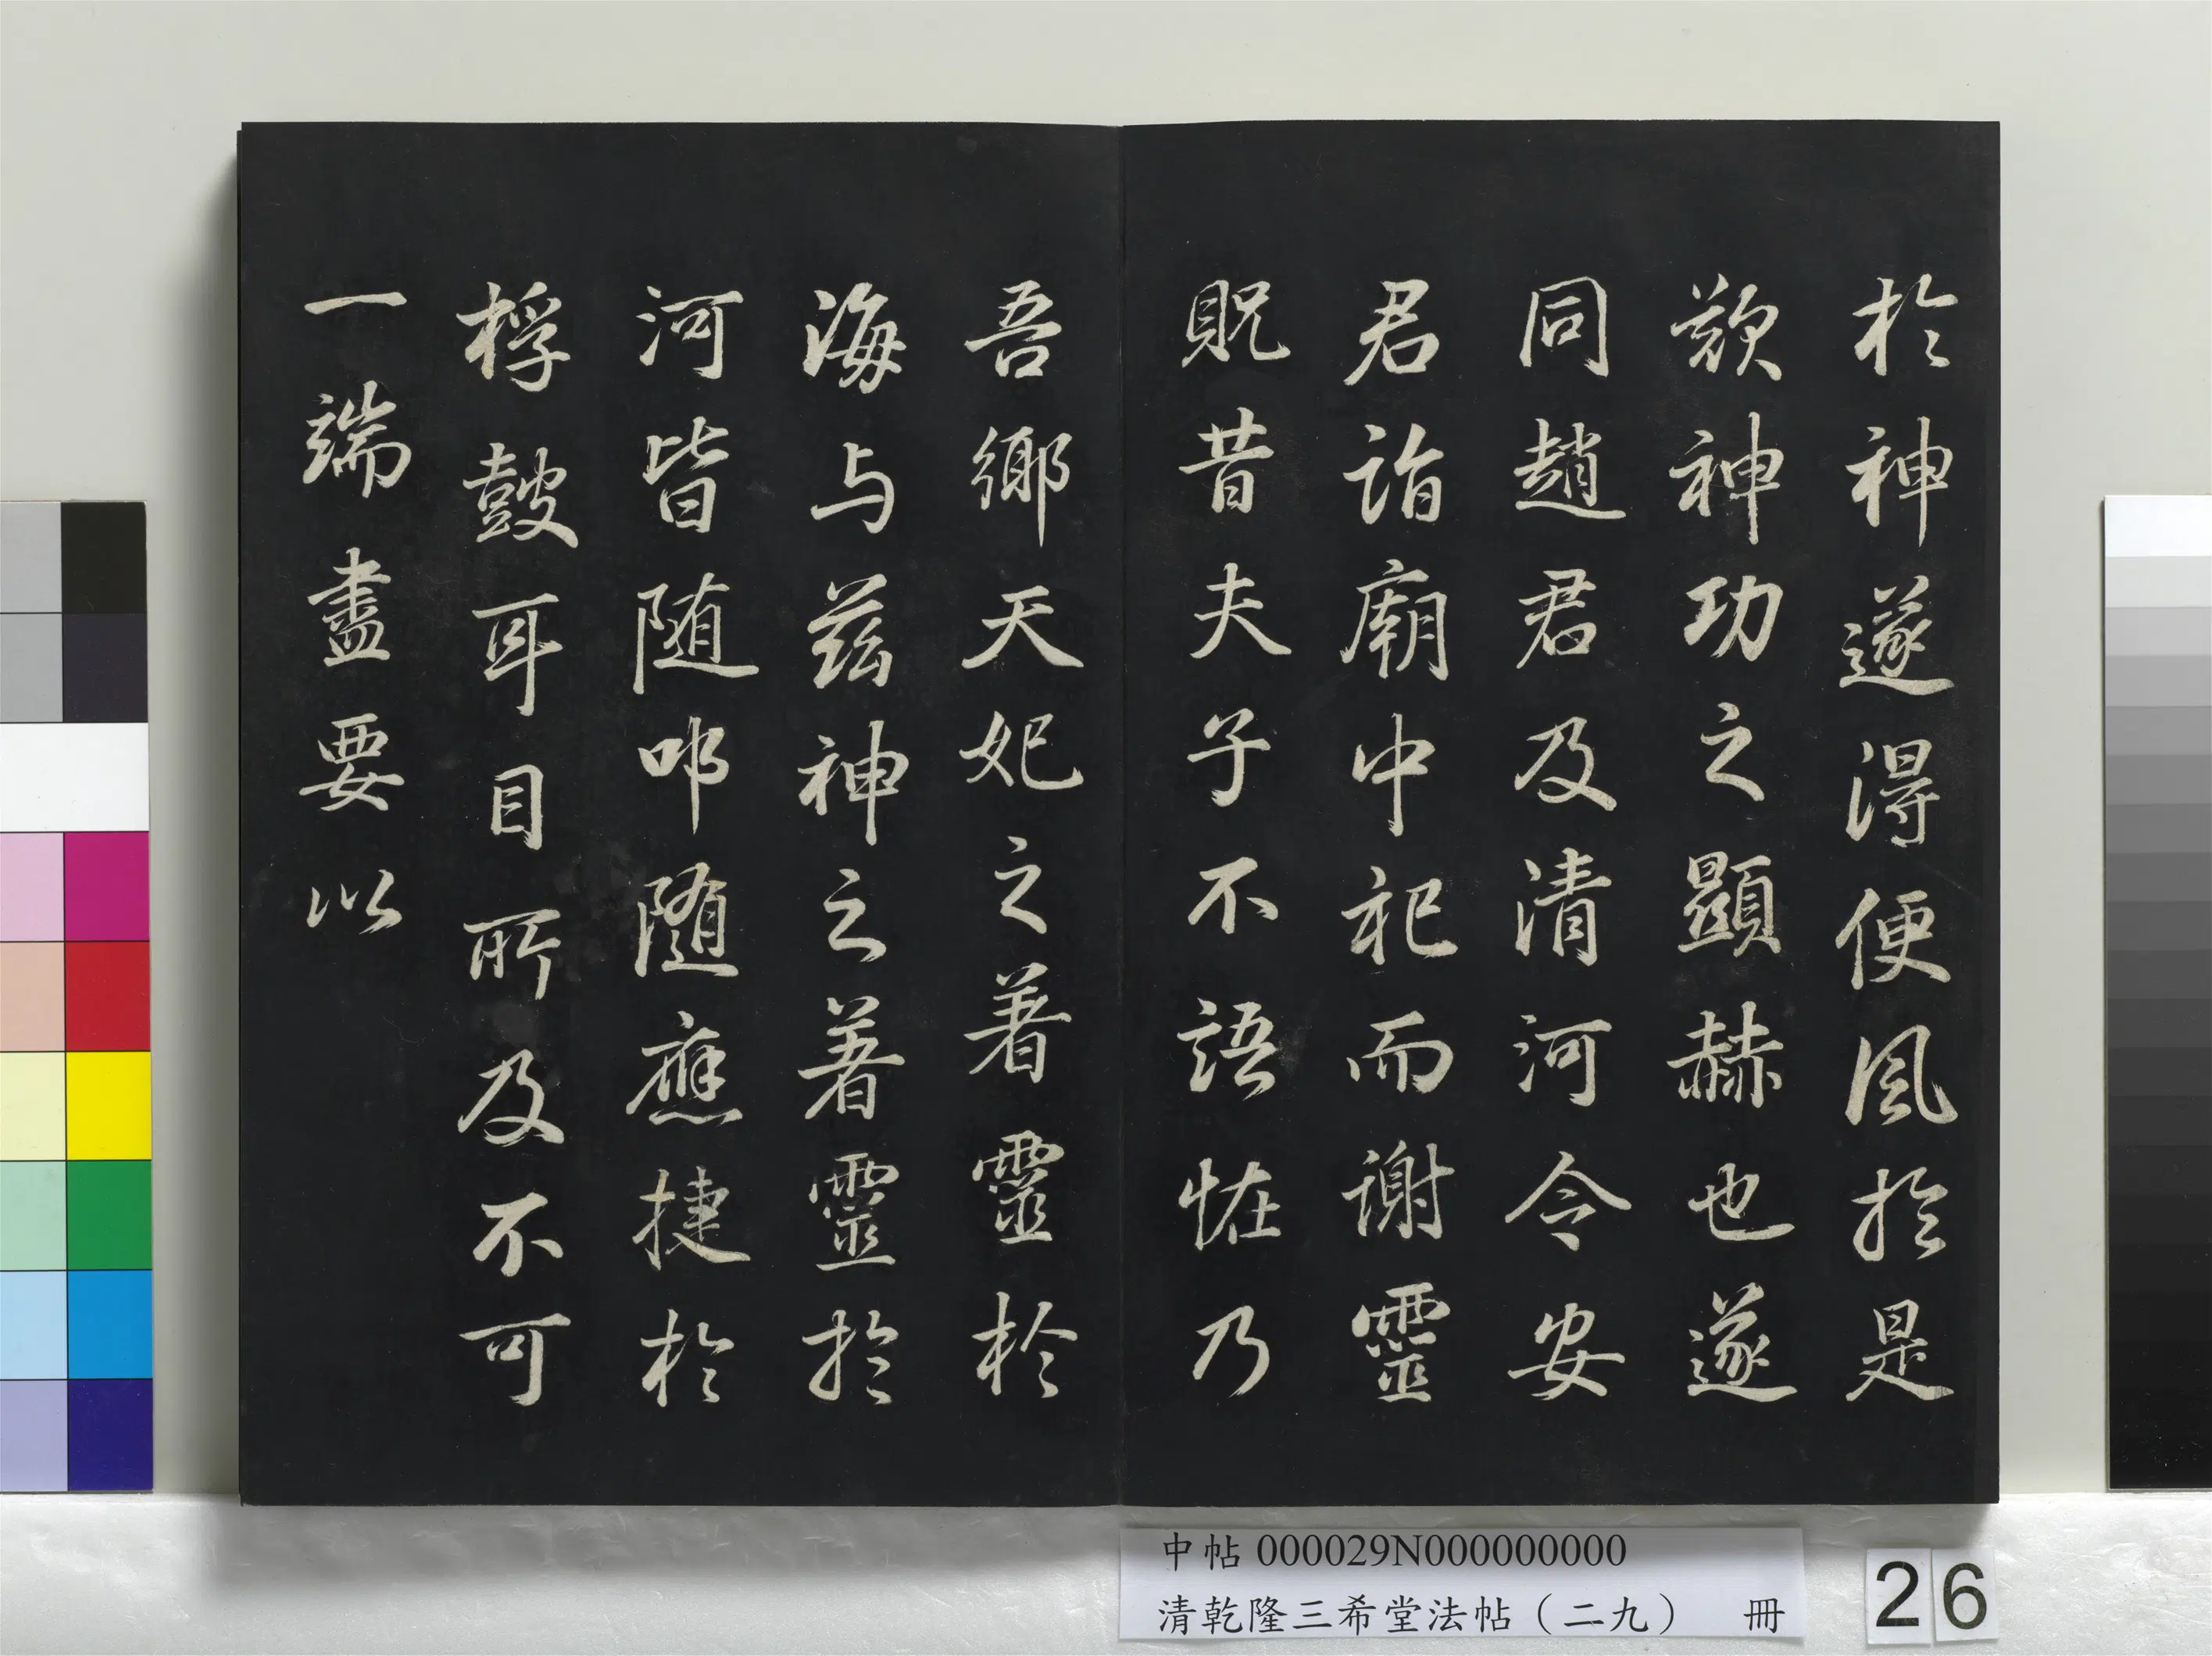 於神遂得便風於是
歎神功之顯赫也遂
同趙君及清河令安
君詣廟中祀而謝靈
貺昔夫子不語怪乃
吾鄉天妃之著靈於
海与茲神之著靈於
河皆随叩随應捷於
桴鼓耳目所及不可
一端盡要以
中帖 000029N000000000
清乾隆三希堂法帖（二九） 冊
26